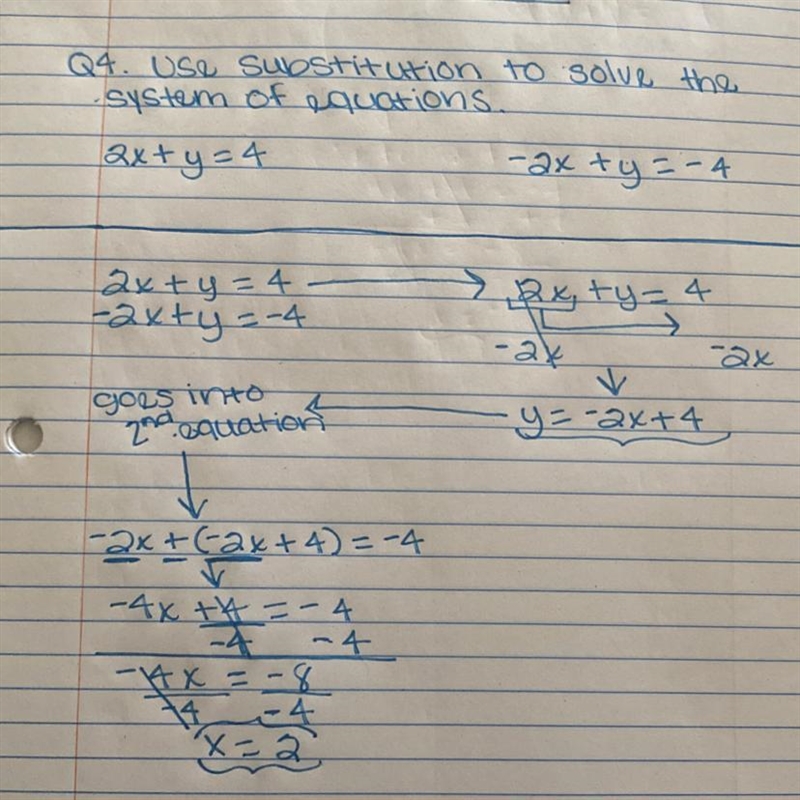 Q4. Use substitution to solve the
system of equations.
2x + y = 4
-2x + y = -4
2x + y = 4
-2x + y = -4
2x + y = 4
-2x -2x
y = -2x + 4
goes into
2nd equation
-2x + (-2x + 4) = -4
-4x + 4 = -4
-4 -4
-4x = -8
-4 -4
x = 2